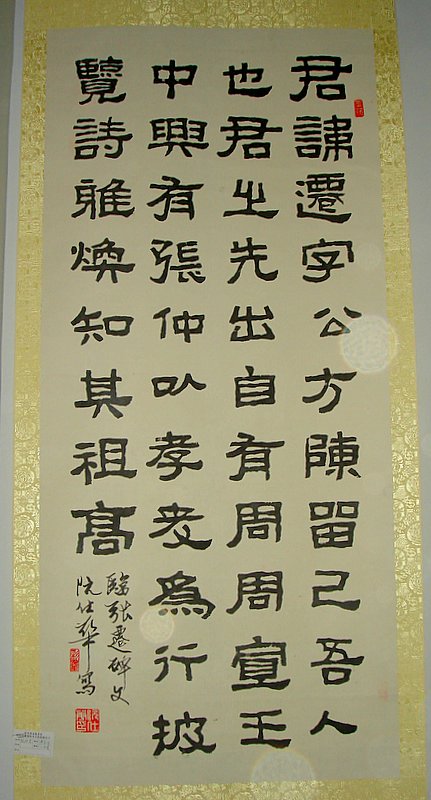 君諱遷字公方陳留己吾人
也君之先出自有周周宣王
中興有張仲以孝友爲行披
覽詩雅煥知其祖高
臨張遷碑文
阮仕華寫